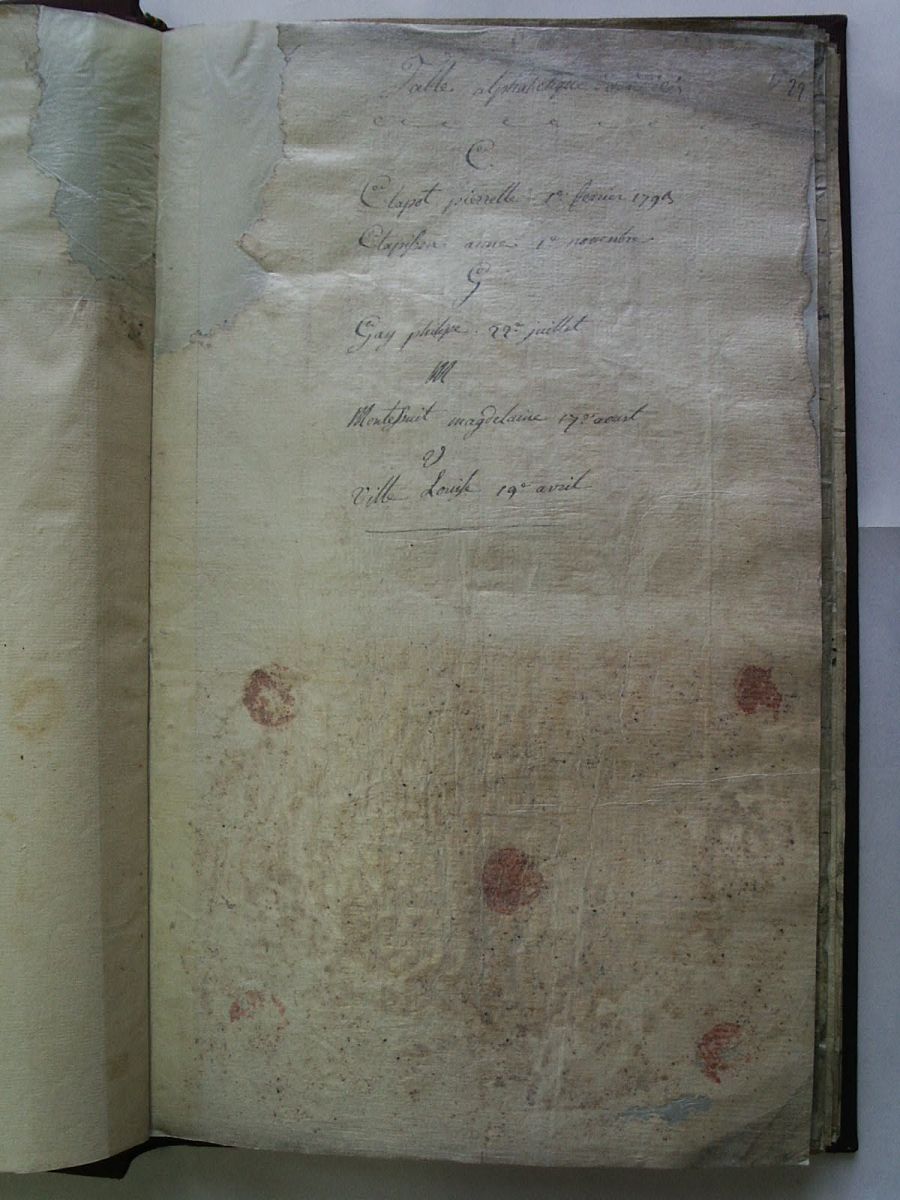 Table alphabetique
C.
Clapot pierrette 1er fevrier 1793
Clapisson anne 1er novembre
G
Gay philipe. 22e juillet
M
Montessuit magdelaine 17e aoust
V
Ville Louise 19e avril